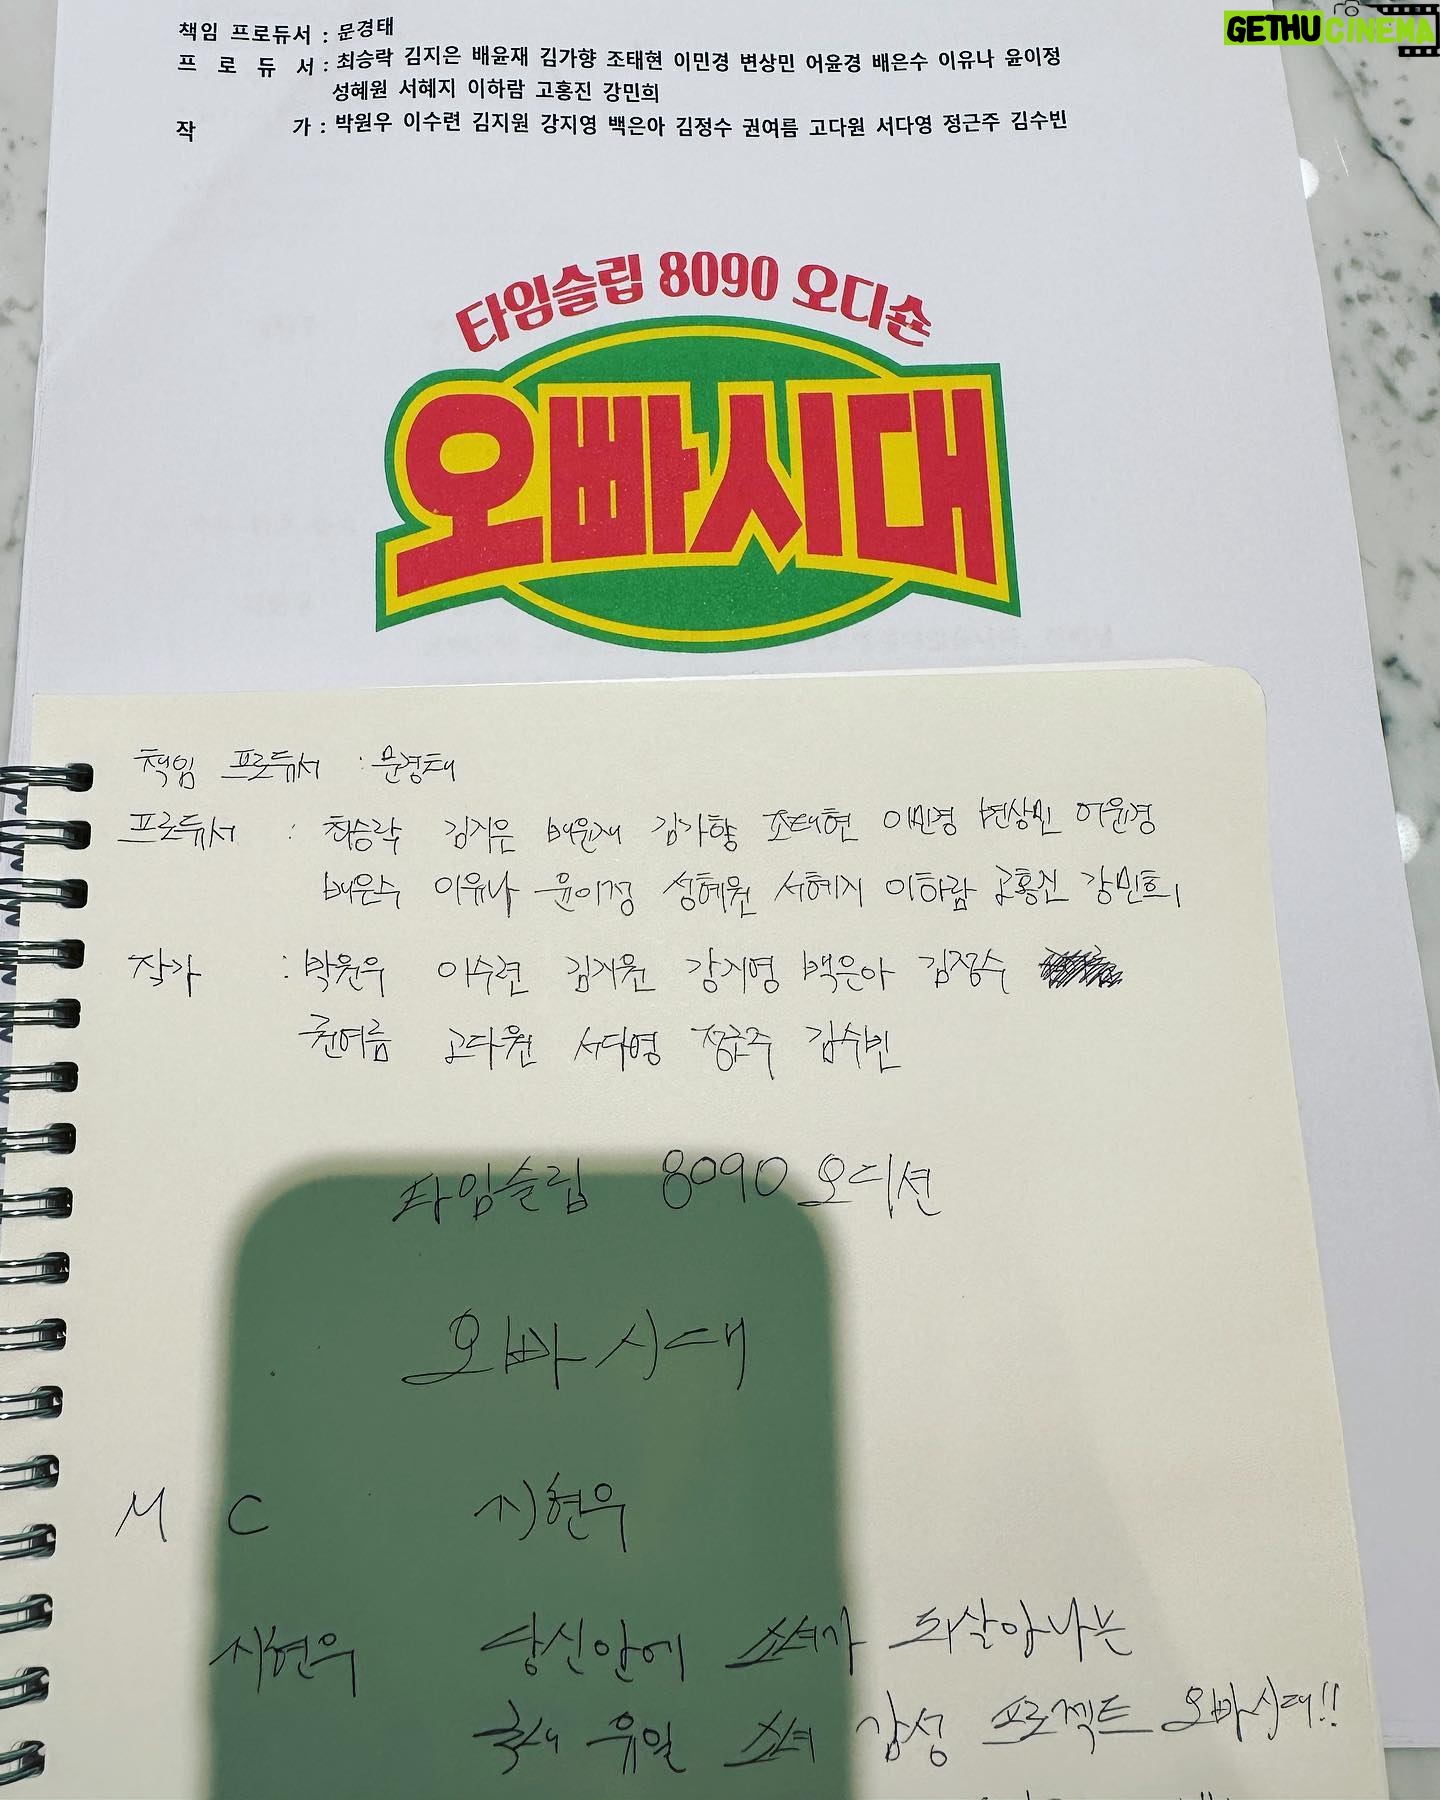 GETHUCINEMA
책임 프로듀서 : 문경태
프 로 듀 서 : 최승락 김지은 배윤재 김가향 조태현 이민경 변상민 어윤경 배은수 이유나 윤이정
성혜원 서혜지 이하람 고홍진 강민희
작 가 : 박원우 이수련 김지원 강지영 백은아 김정수 권여름 고다원 서다영 정근주 김수빈
타임슬립 8090 오디숀
오빠시대
책임 프로듀서 : 문경태
프로듀서 : 최승락 김지은 배윤재 김가향 조태현 이민경 변상민 어윤경
배은수 이유나 윤이정 성혜원 서혜지 이하람 고홍진 강민희
작가 : 박원우 이수련 김지원 강지영 백은아 김정수
권여름 고다원 서다영 정근주 김수빈
타임슬립 8090 오디션
오빠시대
M C 지현우
지현우 당신안에 소녀가 되살아나는
국내 유일 소녀 감성 프로젝트 오빠시대!!